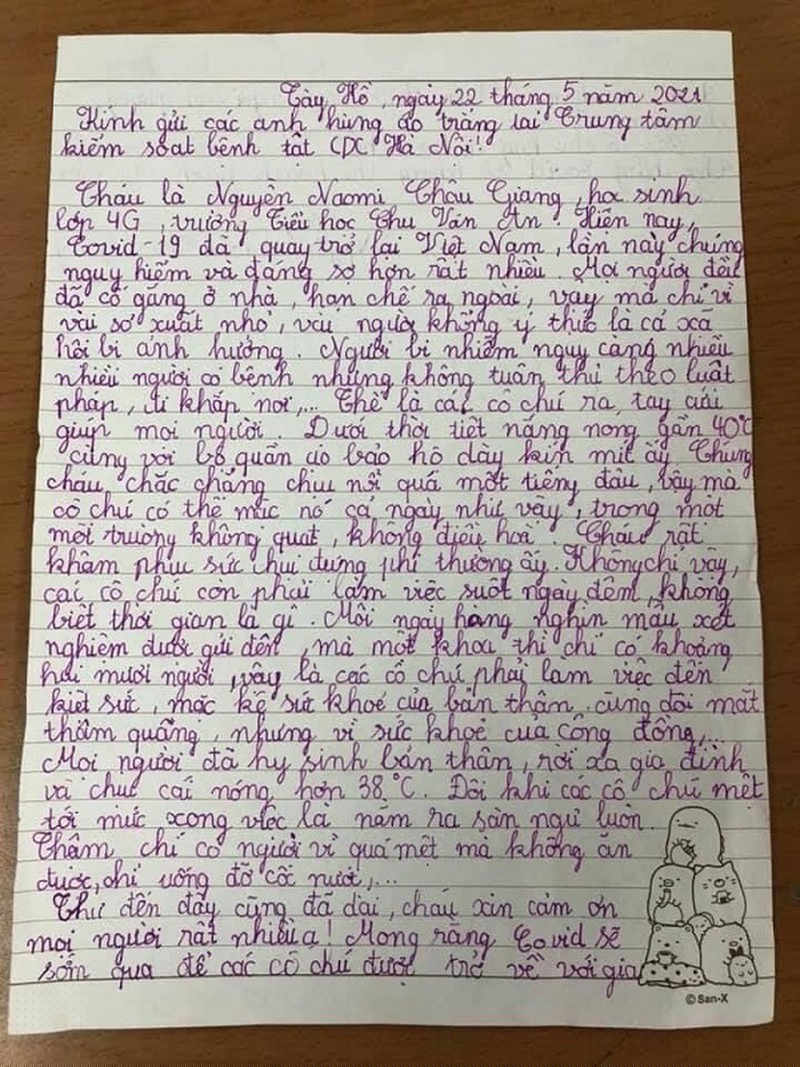 Tây Hồ, ngày 22 tháng 5 năm 2021
Kính gửi các anh hùng áo trắng tại Trung tâm
kiểm soát bệnh tật CDC Hà Nội!
Cháu là Nguyễn Naomi Châu Giang, học sinh
lớp 4G, trường Tiểu học Chu Văn An. Hiện nay,
Covid-19 đã quay trở lại Việt Nam, lần này chúng
nguy hiểm và đáng sợ hơn rất nhiều. Mọi người đều
đã cố gắng ở nhà, hạn chế ra ngoài, vậy mà chỉ vì
vài sơ xuất nhỏ, vài người không ý thức là cả xã
hội bị ảnh hưởng. Người bị nhiễm ngày càng nhiều
nhiều người có bệnh nhưng không tuân thủ theo luật
pháp, đi khắp nơi,... Thế là các cô chú ra tay cứu
giúp mọi người. Dưới thời tiết nắng nóng gần 40°C
cùng với bộ quần áo bảo hộ dày kín mít ấy. Chúng
cháu chắc chẳng chịu nổi quá một tiếng đâu, vậy mà
cô chú có thể mặc nó cả ngày như vậy, trong một
môi trường không quạt, không điều hoà. Cháu rất
khâm phục sức chịu đựng phi thường ấy. Không chỉ vậy,
các cô chú còn phải làm việc suốt ngày đêm, không
biết thời gian là gì. Mỗi ngày hàng nghìn mẫu xét
nghiệm được gửi đến, mà một khoa thì chỉ có khoảng
hai mươi người, vậy là các cô chú phải làm việc đến
kiệt sức, mặc kệ sức khoẻ của bản thân, cùng đôi mắt
thâm quầng, nhưng vì sức khoẻ của cộng đồng,...
Mọi người đã hy sinh bản thân, rời xa gia đình
và chịu cái nóng hơn 38°C. Đôi khi các cô chú mệt
tới mức xong việc là nằm ra sàn ngủ luôn.
Thậm chí có người vì quá mệt mà không ăn
được, chỉ uống đỡ cốc nước,...
Thư đến đây cũng đã dài, cháu xin cảm ơn
mọi người rất nhiều ạ! Mong rằng Covid sẽ
sớm qua để các cô chú được trở về với gia
© San-X